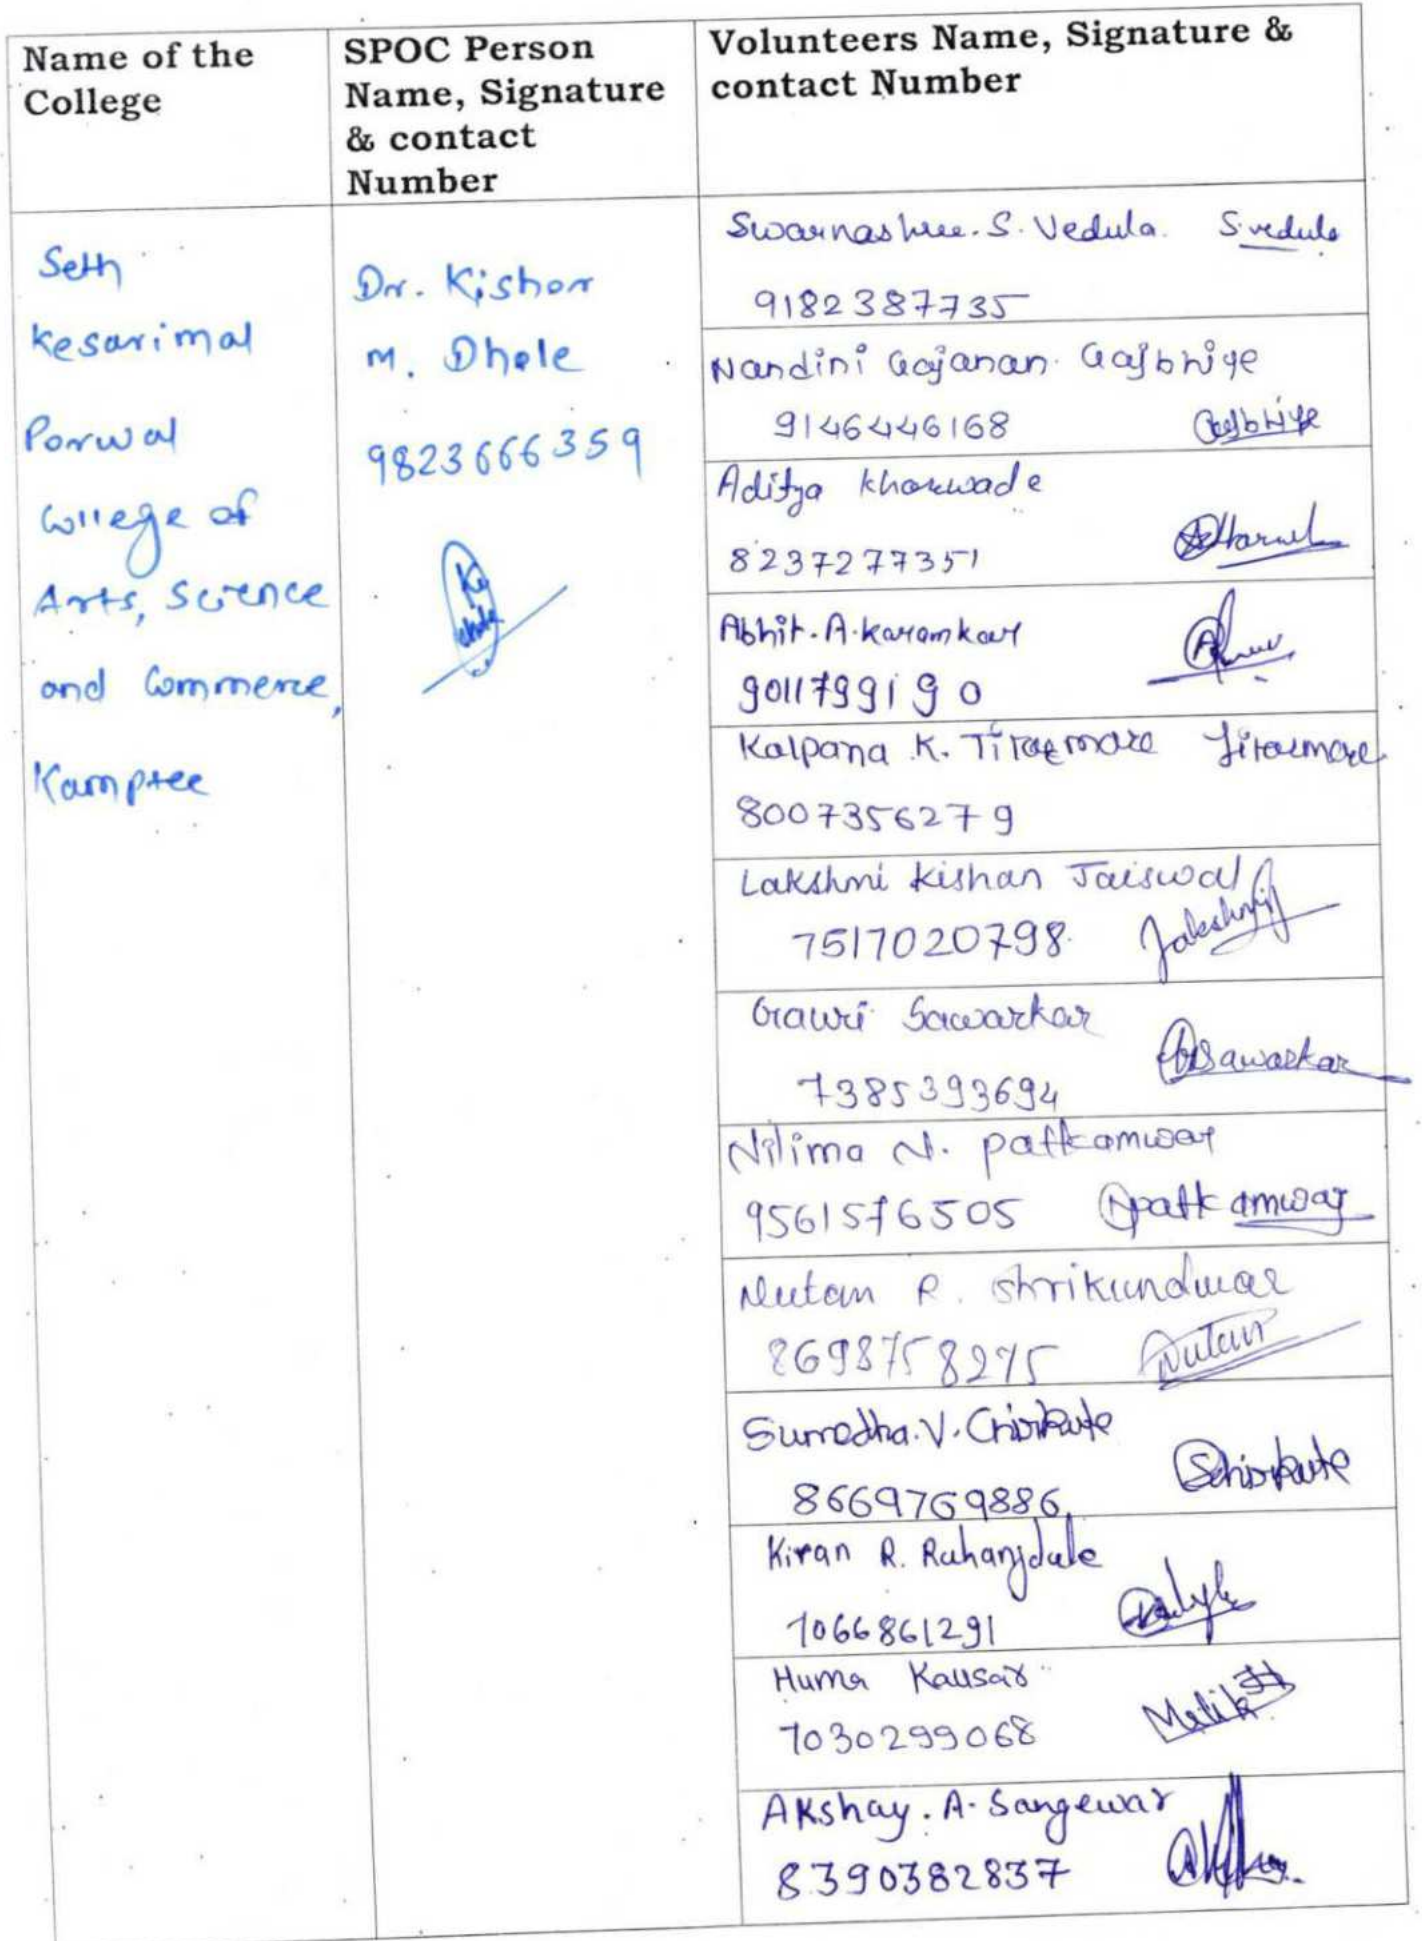 Name of the
College
SPOC Person
Name, Signature
& contact
Number
Volunteers Name, Signature &
contact Number
Seth
Kesarimal
Porwal
College of
Arts, Science
and Commerce,
Kamptee
Dr. Kishor
M. Dhole
9823666359
Swarnashree. S. Vedula. S.vedula
9182387735
Nandini Gajanan. Gajbhiye
9146446168 Gajbhiye
Aditya Kharwade
8237277351
Abhit. A. Karamkar
9011799190
Kalpana K. Tiraemare Tiraemare
8007356279
Lakshmi Kishan Jaiswal
7517020798. Lakshmi
Gauri Sawarkar
7385393694 GSawarkar
Nilima N. Patkamwar
9561576505 Npatkamwar
Nutan R. Shrikundwar
8698758275 Nutan
Sumedha. V. Chirkute
8669769886 Schirkute
Kiran R. Rahangdale
7066861291
Huma Kausar
7030299068 Malik H
Akshay. A. Sangewar
8390382837